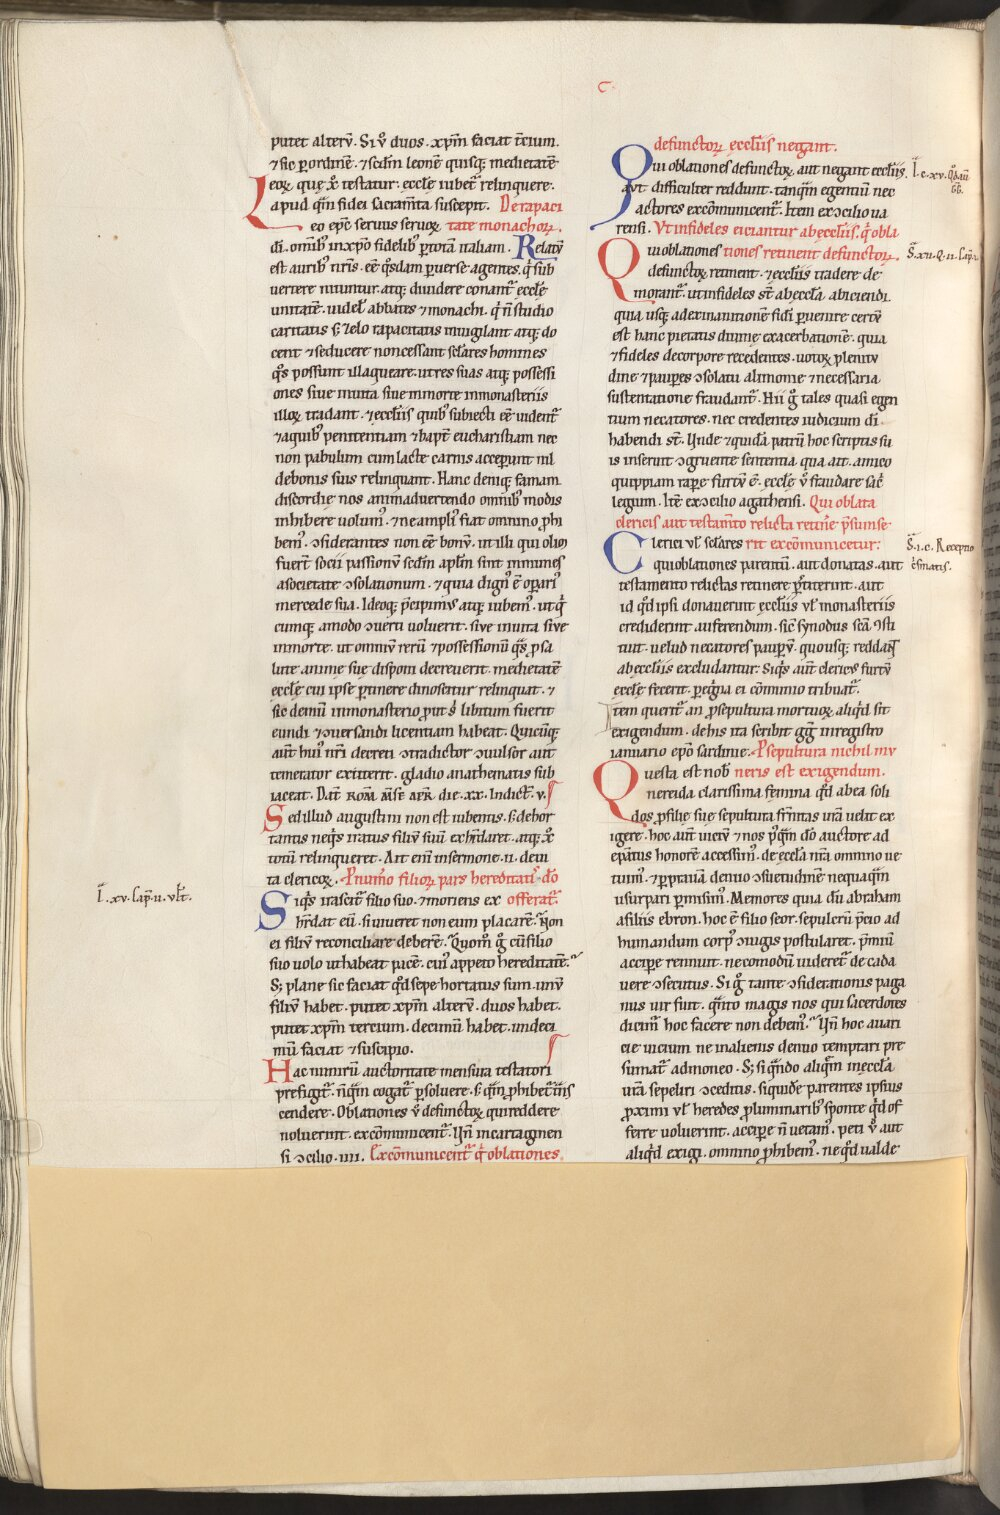 putet alterū. Si ů duos. xp̄m faciat t̄cium.
⁊ sic ꝑ ordinē. ⁊ sedm̄ leonē quisq; medietatē
eoꝝ que x̊ testatur. eccl̄e iubet᷑ relinquere.
apud quē fidei sacram̄ta suscepit. De rapaci
Leo ep̄c seruus seruoꝝ tate monachoꝝ.
di. omīb᷒ in xp̄o fidelib᷒ ꝑ totā italiam. Relatū
est aurib᷒ nr̄is. eē q̊sdam ꝑuerse agentes. q̇ sub
uertere nituntur. atq; diuidere conant᷑ eccl̄e
unitatē. uidel᷒ abbates ⁊ monachi. q̇ ñ studio
caritatis s; zelo rapacitatis inuigilant atq; do
cent ⁊ seducere non cessant scl̄ares homines
q̊s possunt illaqueare. ut res suas atq; possessi
ones siue in uita siue in morte in monasteriis
illoꝝ tradant. ⁊ eccl̄iis quib᷒ subiecti eē uident᷑
⁊ a quib᷒ penitentiam ⁊ bapt̄ eucharistiam nec
non pabulum cum lacte carnis acceperunt nil
de bonis suis relinquant. Hanc deniq; famam
discordie nos animaduertendo omnib᷒ modis
inhibere uolum᷒. ⁊ ne ampli᷒ fiat omnino ꝓhi
bem᷒. ɔsiderantes non eē bonū. ut illi qui olim
fuer̄t socii passionū sedm̄ apl̄m sint inmunes
a societate ɔsolationum. ⁊ quia dign᷒ ē oꝑari᷒
mercede sua. Ideoq; p̄cipim᷒ atq; iubem᷒. ut q̇
cumq; amodo ɔuerti uoluerit. siue in uita siue
in morte. ut omniū rerū ⁊ possessionū q̊s ꝓ sa
lute anime sue disponi decreuerit. medietatē
eccl̄e cui ipse ꝑtinere dinoscitur relinquat. ⁊
sic demū in monasterio ꝓut s᷒ libitum fuerit
eundi ⁊ ɔuersandi licentiam habeat. Quicūq;
aut̄ hui᷒ nr̄i decreti ɔtradictor ɔuulsor aut
temerator extiterit. gladio anathematis sub
iaceat. Dat̄ ROM̄. M̄SE AP̄R. die. xx. Indict̄. v.
Sed illud augustini non est iubentis. s; dehor
tantis neq̇s iratus filiū suū exhr̄daret. atq; x̊
totū relinqueret. Ait eni᷒ in sermone. ii. de ui
ta clericoꝝ. P numero filioꝝ pars hereditatis do
Siq̇s irascit᷑ filio suo. ⁊ moriens ex offerat᷑.
hr̄dat eū. si uiueret non eum placarē. Non
ei filiū reconciliare deberē. Quom̊ g̊ cū filio
suo uolo ut habeat pacē. cui᷒ appeto hereditatē.
S; plane sic faciat q̊d sepe hortatus sum. unū
filiū habet. putet xp̄m alterū. duos habet.
putet xp̄m tercium. decimū habet. undeci
mū faciat ⁊ suscipio.
Hac nimirū auctoritate mensura testatori
prefigit᷑. ñ q̄m cogat᷑ ꝑsoluere. s; q̄m ꝓhibet᷑ tn̄s
cendere. Oblationes ů defunctoꝝ qui reddere
noluerint. excōmunicent᷑. Un̄ in cartaginen
si ɔcilio. iiii. Excōmunicent᷑ q̇ oblationes
defunctoꝝ eccl̄iis negant.
Qui oblationes defunctoꝝ. aut negant eccl̄iis.
aut difficulter reddunt. tanq̄m egentiū nec
actores excōmunicent᷑. Item ex ɔcilio ua
rensi. Ut infideles eiciantur ab eccl̄iis. q̇ obla
Qui oblationes tiones retinent defunctoꝝ.
defunctoꝝ retinent. ⁊ eccl̄iis tradere de
morant᷑. ut infideles st̄ ab eccl̄a abiciendi.
quia usq; ad exinanitionē fidi ꝑuenire certū
est hanc pietatis diuine exacerbationē. quia
⁊ fideles de corpore recedentes. uotoꝝ plenitu
dine ⁊ pauꝑes ɔsolatu alimonie ⁊ necessaria
sustentatione fraudant᷑. Hii g̊ tales quasi egen
tium necatores. nec credentes iudicium di᷒
habendi st̄. Unde ⁊ quidā patrū hoc scriptis su
is inseruit ɔgruente sententia qua ait. amico
quippiam raꝑe furtū ē. eccl̄e ů fraudare sac᷒
legium. Itē ex ɔcilio agathensi. Qui oblata
clericis aut testam̄to relicta retin̄e p̄sumse
Clerici ul̄ scl̄ares rit excōmunicetur:
qui oblationes parentū. aut donatas. aut
testamento relictas retinere ꝑstiterint. aut
id q̊d ipsi donauerint eccl̄iis ul̄ monasteriis
crediderint auferendum. sic̄ synodus sc̄a ɔsti
tuit. uelud necatores pauꝑū. quousq; reddant
ab eccl̄iis excludantur. Siq̇s aut̄ clericus furtū
eccl̄e fecerit. ꝑegrina ei cōmunio tribuat᷑.
Item querit᷑ an ꝓ sepultura mortuoꝝ aliq̇d sit
exigendum. de his ita scribit gḡ in registro
ianuario epō sardinie. P sepultura nichil mu
Questa est nob᷒ neris est exigendum.
nereida clarissima femina q̊d ab ea soli
dos ꝓ filie sue sepultura fr̄nitas ur̄a uelit ex
igere. hoc aut̄ uiciū ⁊ nos p᷒q̄m do᷒ auctore ad
ep̄atus honorē accessim᷒. de eccl̄a nr̄a omnino ue
tuim᷒. ⁊ ꝑ prauā denuo ɔsuetudinē nequaq̄m
usurpari ꝑmisim᷒. Memores quia dū abraham
a filiis ebron. hoc ē filio seor. sepulcrū p̄cio ad
humandum corp᷒ ɔiugis postularet. p̄miū
accipe rennuit. ne comodū uideret᷑ de cada
uere ɔsecutus. Si g̊ tante ɔsiderationis paga
nus uir fuit. q̄nto magis nos qui sacerdotes
dicim᷒ hoc facere non debem᷒. Un̄ hoc auari
cie uicium ne in alienis denuo temptari pre
sumat᷑ admoneo. S; si q̄ndo aliq̄m in eccl̄a
ur̄a sepeliri ɔceditis. siquidē parentes ipsius
ꝓximi ul̄ heredes ꝓ luminarib᷒ sponte q̊d of
ferre uoluerint. accipe ñ uetam᷒. peti ů aut
aliq̇d exigi. omnino ꝓhibem᷒. ne q̊d ualde